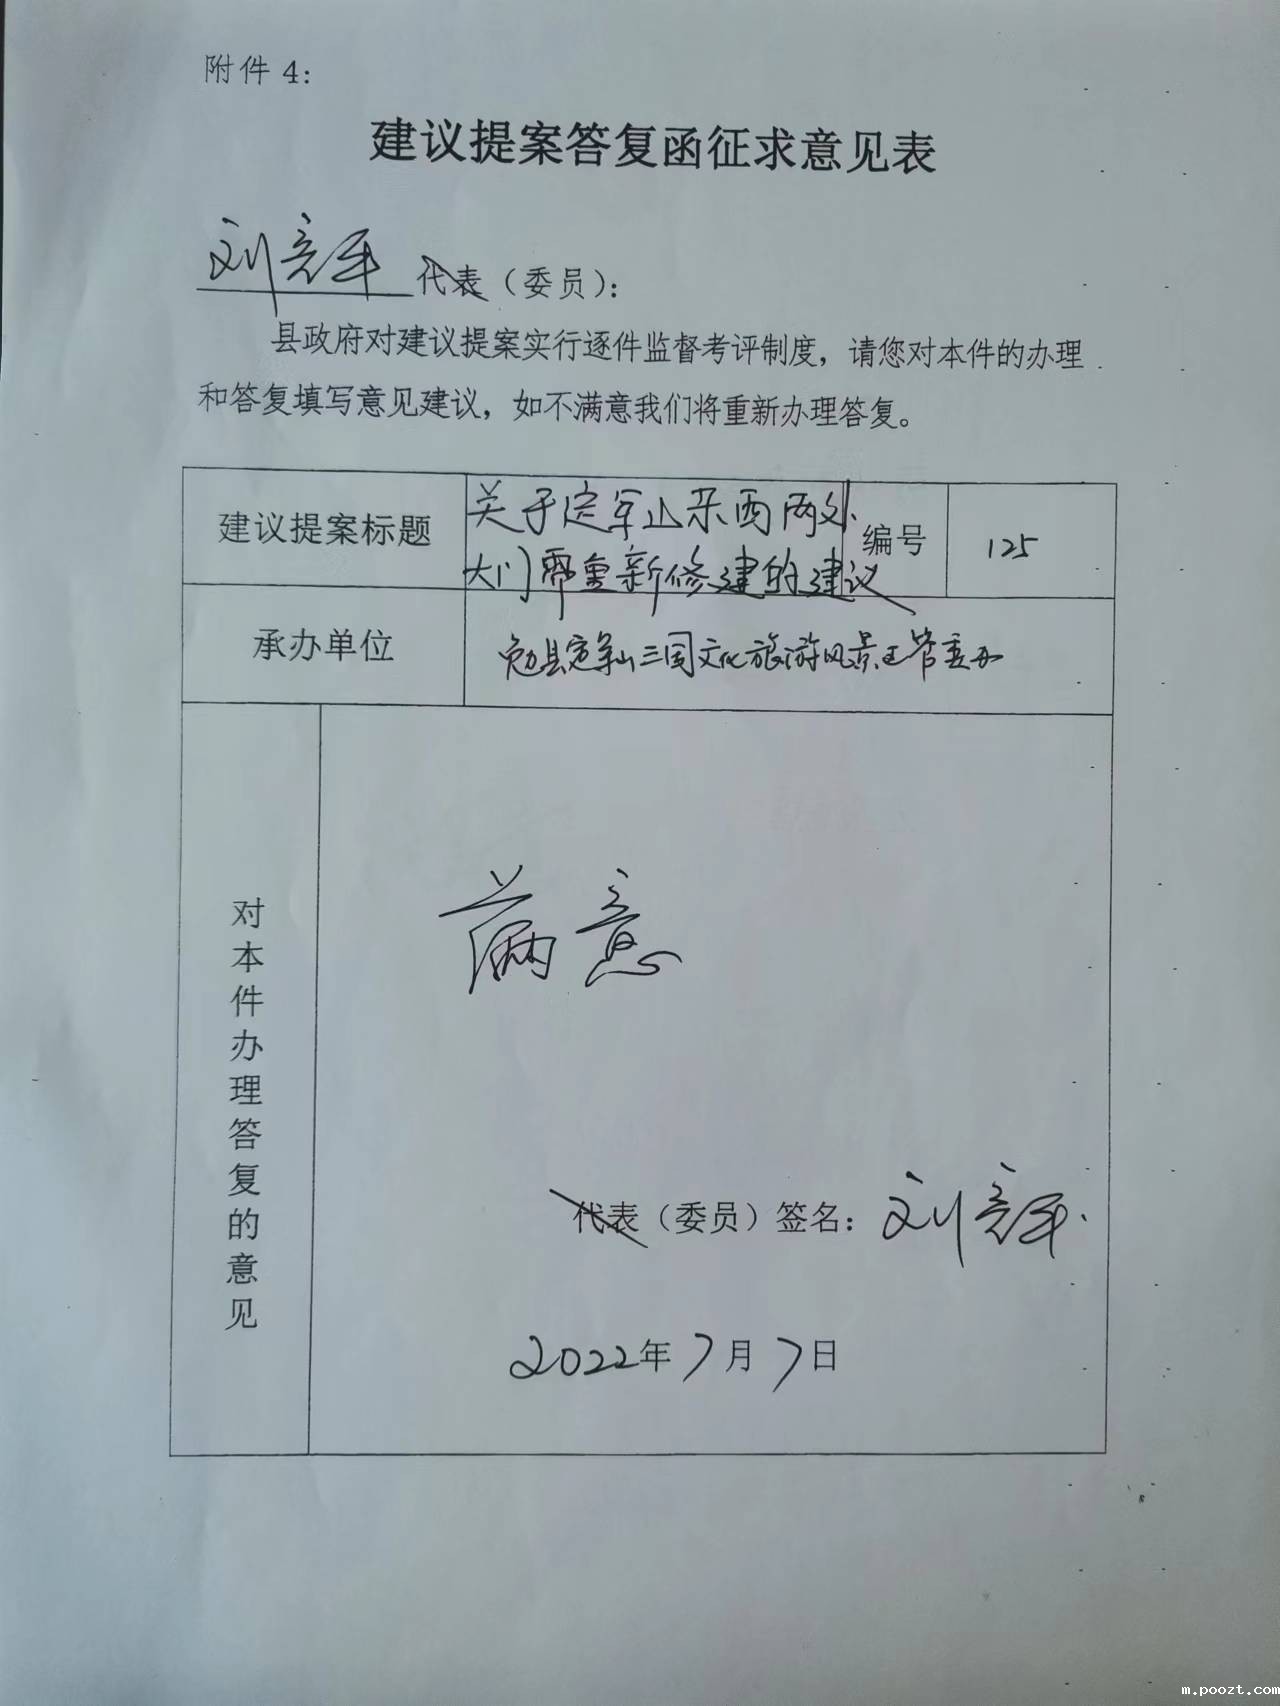 附件 4：
建议提案答复函征求意见表
刘彦军 代表（委员）：
县政府对建议提案实行逐件监督考评制度，请您对本件的办理
和答复填写意见建议，如不满意我们将重新办理答复。
建议提案标题
关于定军山东西两处
大门需重新修建的建议
编号
125
承办单位
勉县定军山三国文化旅游风景区管委办
对本件办理答复的意见
满意
代表（委员）签名：刘彦军
2022年7月7日
m.poozt.com